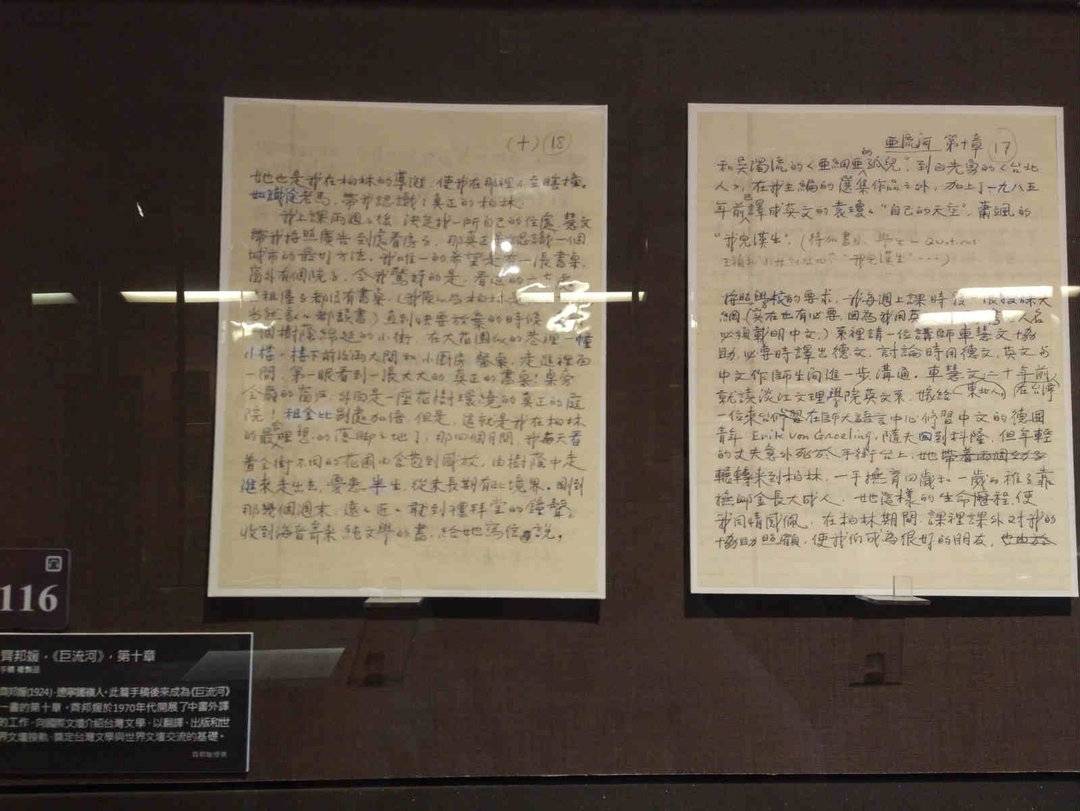 (十) 18
她也是我在柏林的導遊,使我在那裡不至瞎撞。
如識途老馬,帶我認識了真正的柏林。
我上課兩週之後,決定找一所自己的住處,慧文
帶我按照廣告到處看房子,那真正是認識一個
城市的最切方法。我唯一的希望是有一張書桌,
窗外有個院子,令我驚訝的是,看過的
出租房子都沒有書桌
直到快要放棄的時候
一個樹蔭綿延的小街,在大花園似的巷裡一幢
小樓,樓下前後兩大間和小廚房,餐桌,走進裡面
一間,第一眼看到一張大大的真正的書桌!桌旁
全扇的窗戶,外面是一座花樹環境的真正的庭
院!租金比別處加倍,但是,這就是我在柏林
的最理想的落腳之地了,那四個月間,我每天看
著全街不同的花園由含苞到盛放,由樹蔭中走
進來走出去,憂患半生,從未長期有此境界。剛到
那幾個週末,遠遠近近聽到禮拜堂的鐘聲,
收到海音寄來純文學的書,給她寫信說,
亞流河 第十章 17
和吳濁流的《亞細亞的孤兒》,到白先勇的《台北
人》,在我主編的選集作品之外,加上了一九八五
年前譯成英文的袁瓊瓊"自己的天空",蕭颯的
"我兒漢生"。
"我兒漢生"……)
按照學校的要求,我每週上課時發一張授課大
綱(實在也有必要,因為我用英
必須載明中文。)系裡請一位講師車慧文協
助,必要時譯成德文,討論時用德文,英文與
中文作師生間進一步溝通。車慧文二十年前
就讀淡江文理學院英文系,嫁給(東北人) 在台灣
一位來台灣在師大語言中心修習中文的德國
青年 Erik von Groeling,隨夫回到科隆,但年輕
的丈夫意外死於手術台上,她帶着兩個幼子
輾轉來到柏林,一手撫育四歲和一歲的稚子靠
撫卹金長大成人,她這樣的生命歷程,使
我同情感佩,在柏林期間,課裡課外對我的
協助照顧,使我們成為很好的朋友,
116
齊邦媛,《巨流河》,第十章
手稿 複製品
齊邦媛(1924),遼寧鐵嶺人。此篇手稿後來成為《巨流河》
一書的第十章。齊邦媛於1970年代開展了中書外譯
的工作,向國際文壇介紹台灣文學,以翻譯、出版和世
界文壇接軌,奠定台灣文學與世界文壇交流的基礎。